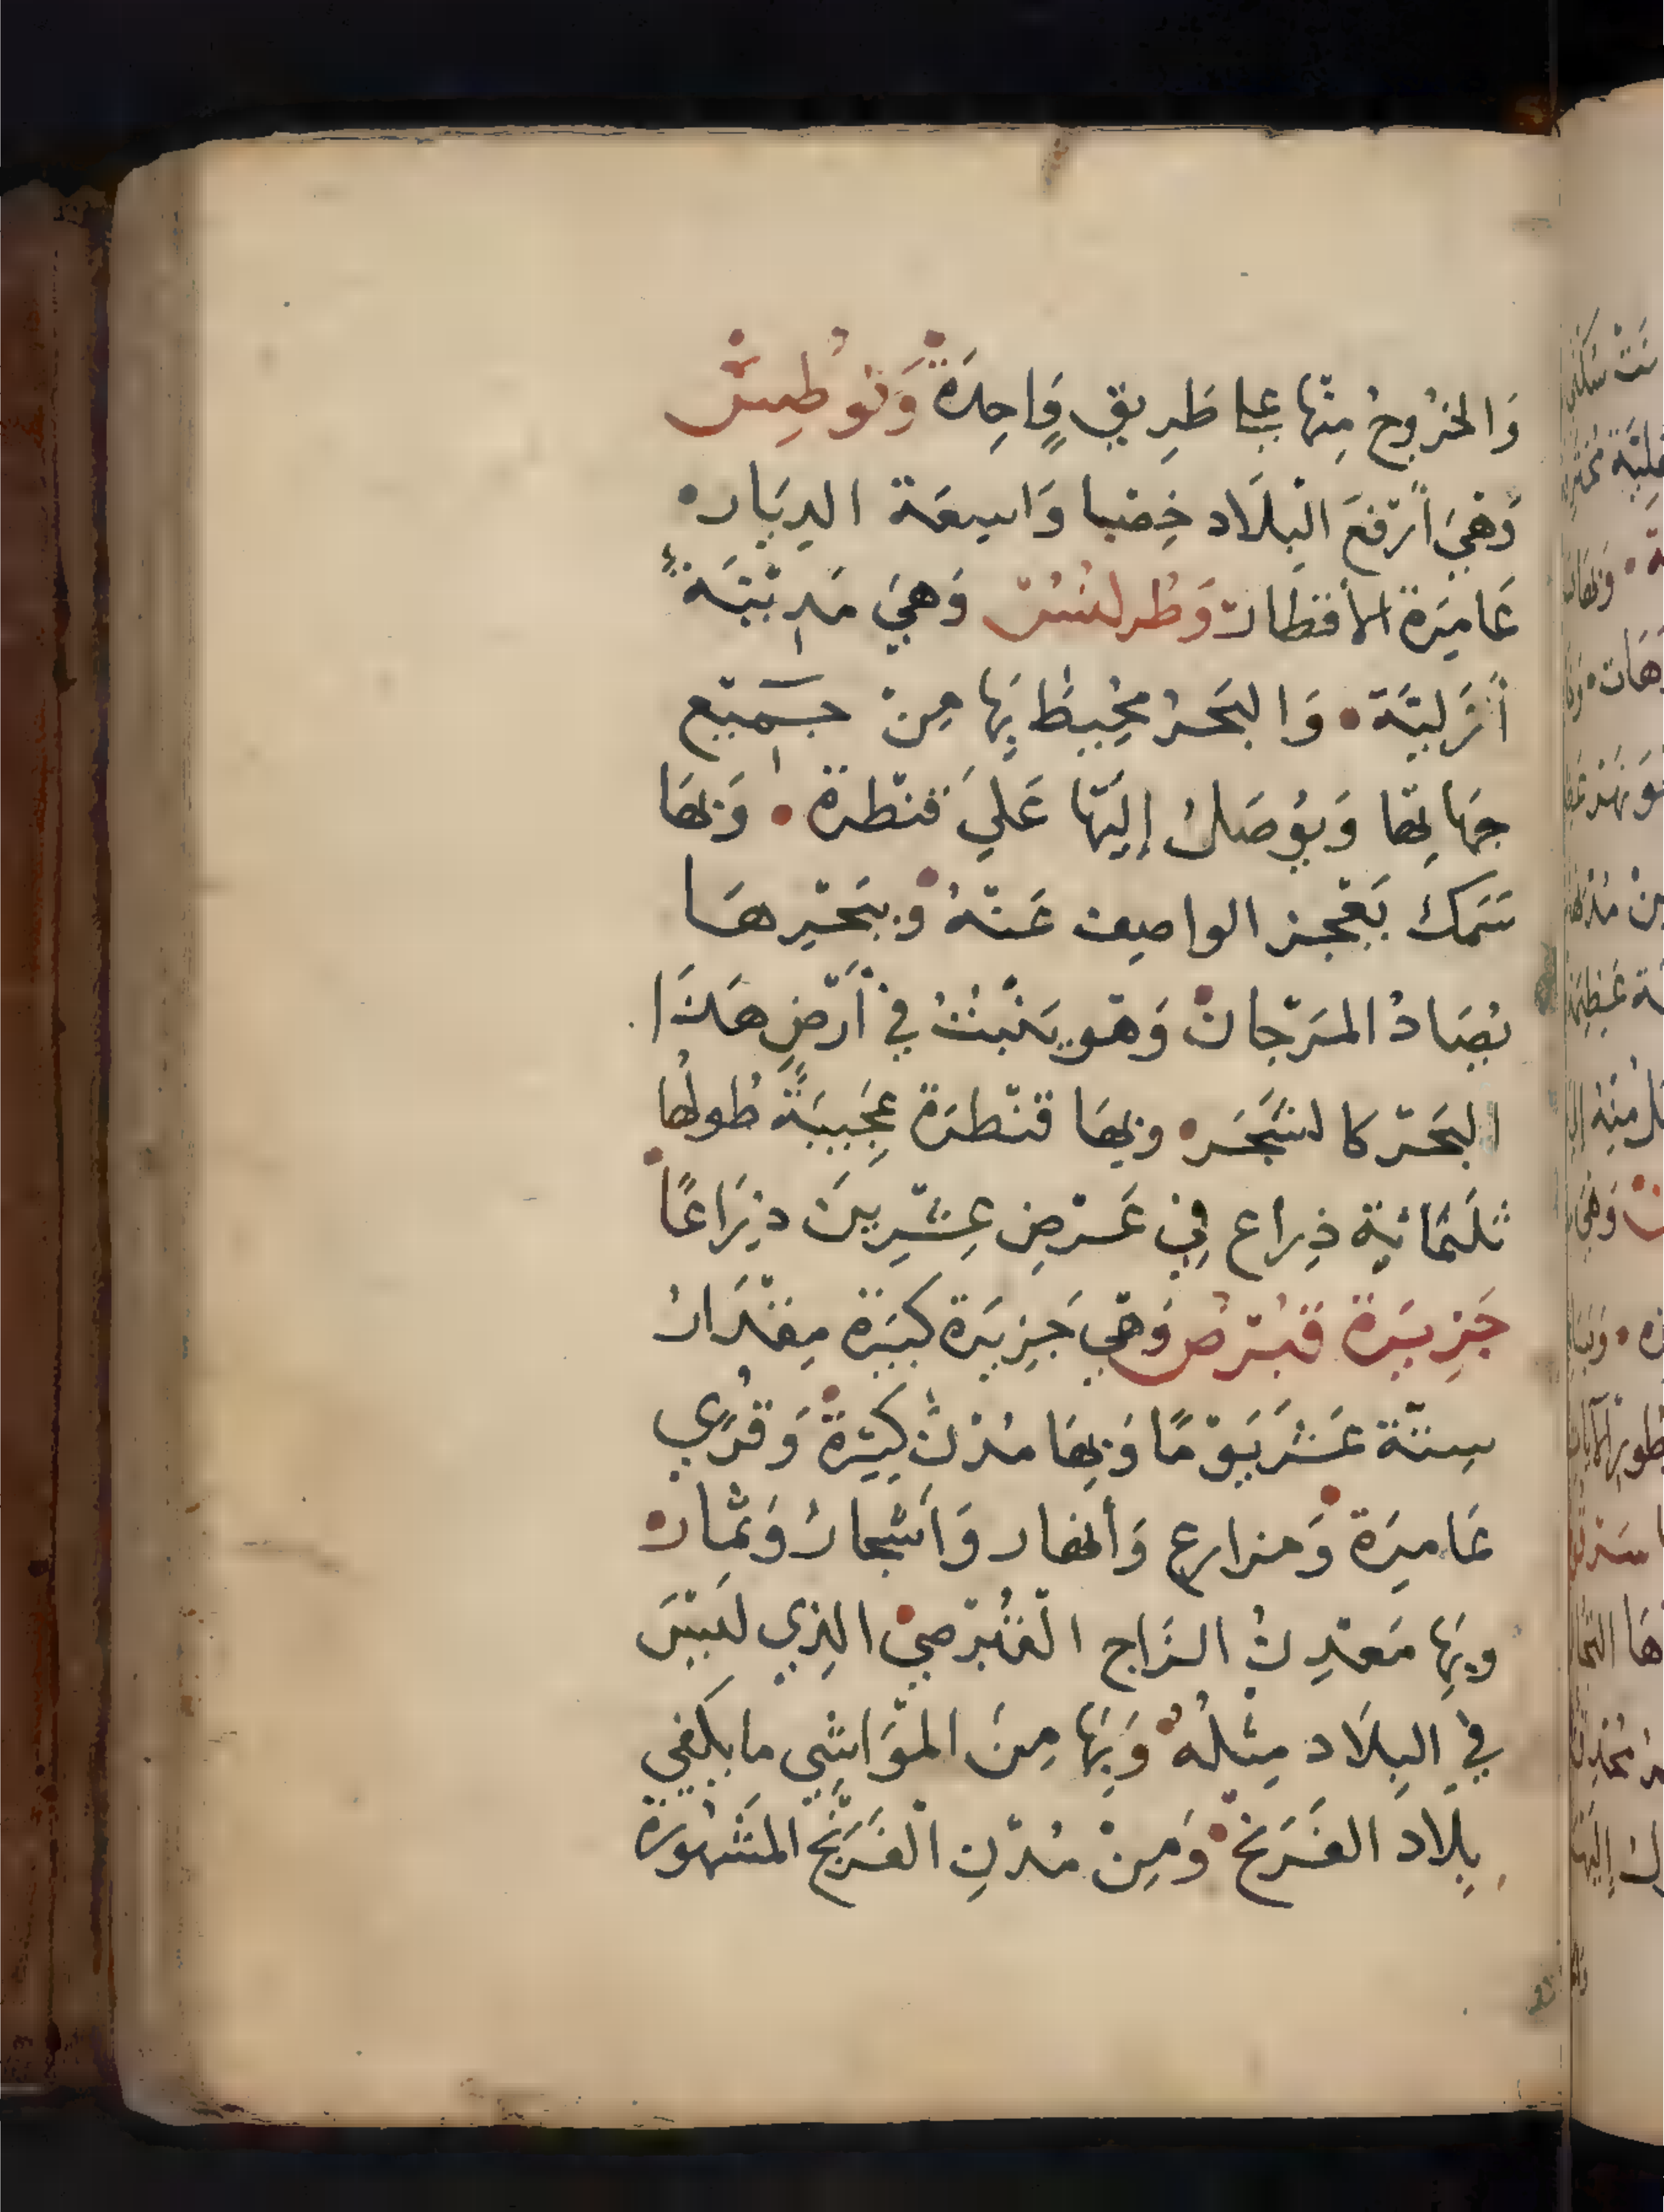 وَالخرُوجُ مِنْها علي طَرِيقٍ وَاحِدَةٌ وَنوطِيسْ
وَهِيَ أَرْفعَ الْبِلَاد خِصْبا وَاسِعَة الدِيَار
عَامِرَة الأقطار وَطُرلسُسْ وَهِيَ مَدِيْنَةٌ
أَزَلِيَّة وَالبَحَرُ مُحِيطٌ بِهَا مِنْ جَمِيْع
جِهَاتِهَا وَيُوصَلُ إِلَيْهَا عَليَ قنْطرة وَبهَا
سَمَك يَعْجز الواصِف عَنْهُ وببَحْرِهَا
يُصَادُ المَرْجانْ وَهْو يَنْبُتُ فِي أَرْضِ هَذَا
البَحْر كالشَجَر وبِهَا قنْطرَة عَجِيبَةٌ طُولُها
ثلَثمائية ذِراع فِي عَرْضِ عِشْرِينَ ذِرَاعًا
جَزِيرَة قبْرُص وَهْي جَزِيرَة كبيَرة مِقْدَارُ
سِتّة عَشَر يَوْمًا وَبِهَا مُدْنٌ كثِيْرَةٌ وَقُرًي
عَامِرَة وَمزارع وَأنهار وَأَشْجارٌ وَثمَار
وبِهَا مَعْدِنُ الزَاج الْقُبْرُصِيْ الذِي ليْسَ
فِي البِلَاد مِثْلُهُ وَبِهَا مِنَ المْوَاشِي ما يكَفي
بِلاد الفَرَنجْ وَمِنْ مُدْنِ الْفَرَنْج المَشْهُورَة